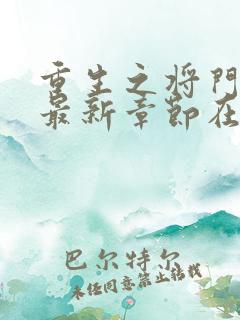 重生之将门
最新章节在
巴尔特尔
未经同意禁止转载